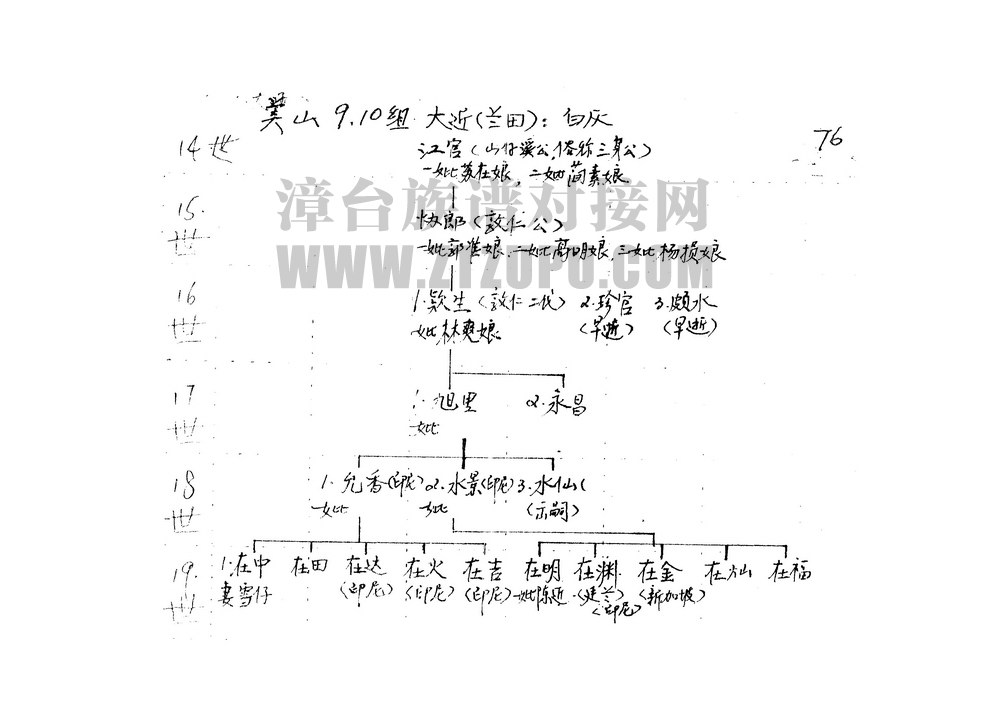 美山 9.10组 大近(兰田): 白灰
76
14世
江宫(山仔溪公,俗称三身公)
一妣苏在娘, 二妣简素娘
漳台族谱对接网
WWW.ZTZUPU.COM
15.
世
协郎(敦仁公)
一妣郭准娘.二妣高明娘,三妣杨损娘
16
世
1.欵生(敦仁二代) 2.珍官 3.颇水
妣林爽娘 (早逝) (早逝)
17
世
1.旭里 2.永昌
妣
18
世
1.允香(印尼) 2.水景(印尼) 3.水仙(
妣 妣 (示嗣)
19.
世
1.在中 在田 在达 在火 在吉 在明 在渊 在金 在山 在福
妻雪仔 (印尼) (印尼) (印尼) 妣陈近 (建兰) (新加坡)
(印尼)